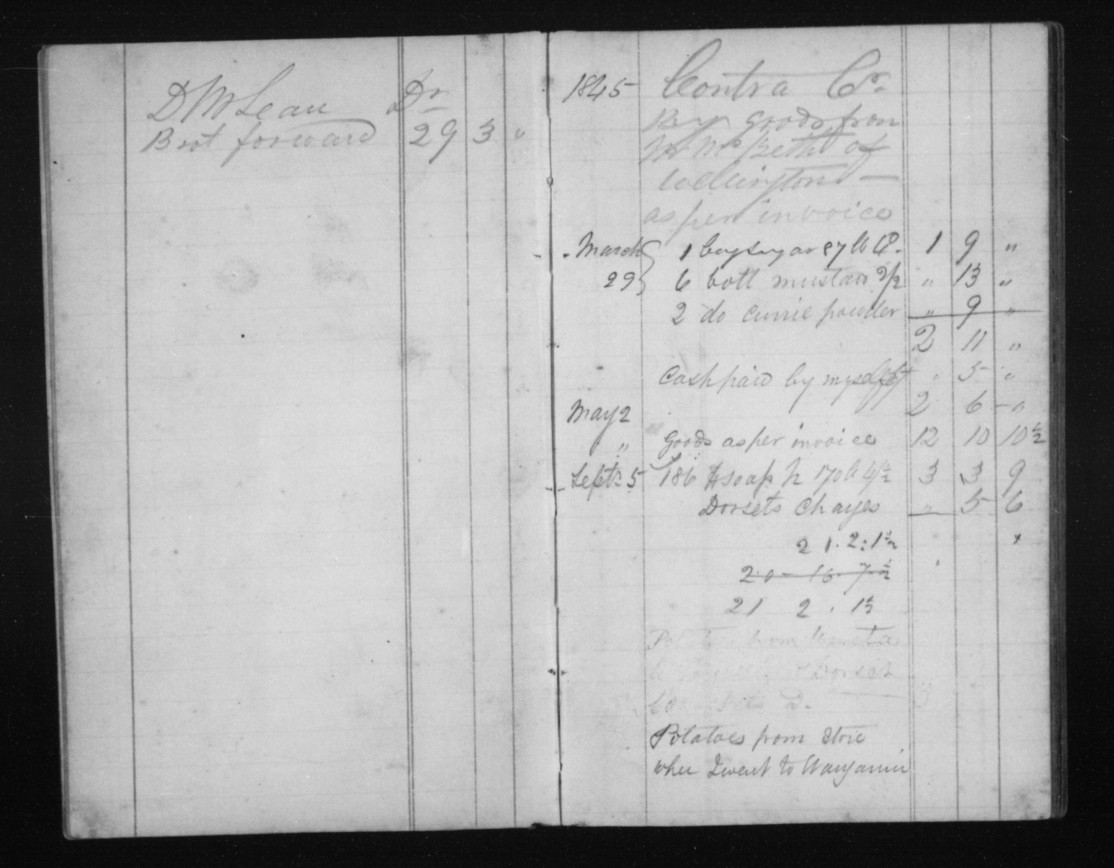 D McLean Dr
Brot forward 29 3 "
1845 Contra Cr
By goods from
Mr McBeth of
Wellington —
as per invoice
March 1 bag sugar 87 lb 4d. 1 9 "
29 6 bott mustard 2/2 " 13 "
2 do Currie powder " 9 "
2 11 "
Cash paid by myself " 5 "
2 6 - "
May 2
" goods as per invoice 12 10 10½
Septr 5 186 soap 170 lb 4½ 3 3 9
Dorsets Chayes " 5 6
21. 2: 1½
20 - 16 - 7½
21 2. 1½
Potatoes from
Dorset
Potatoes from Store
when I went to